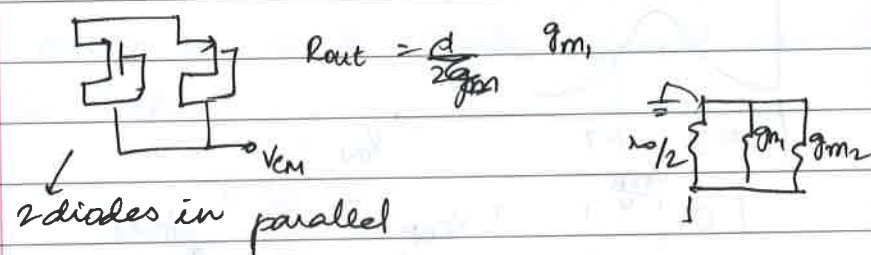 Rout = gm1
VCM
ro/2 gm1 gm2
2 diodes in parallel